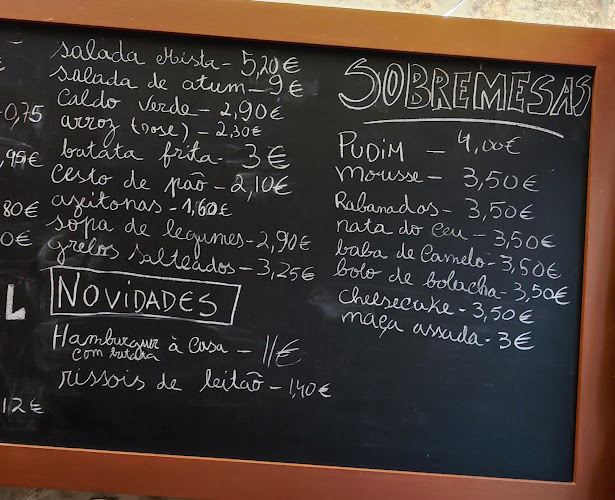 salada Mista - 5,20€
salada de atum - 9€
Caldo verde - 2,90€
arroz (dose) - 2,30€
batata frita - 3€
Cesto de pão - 2,10€
azeitonas - 1,60€
sopa de legumes - 2,90€
grelos salteados - 3,25€
NOVIDADES
Hamburguer à Casa - 11€
com batata
rissois de leitão - 1,40€
-0,75
,95€
80€
0€
L
12€
SOBREMESAS
PUDIM - 4,00€
mousse - 3,50€
Rabanadas - 3,50€
nata do ceu - 3,50€
baba de Camelo - 3,50€
bolo de bolacha - 3,50€
cheesecake - 3,50€
maça assada - 3€